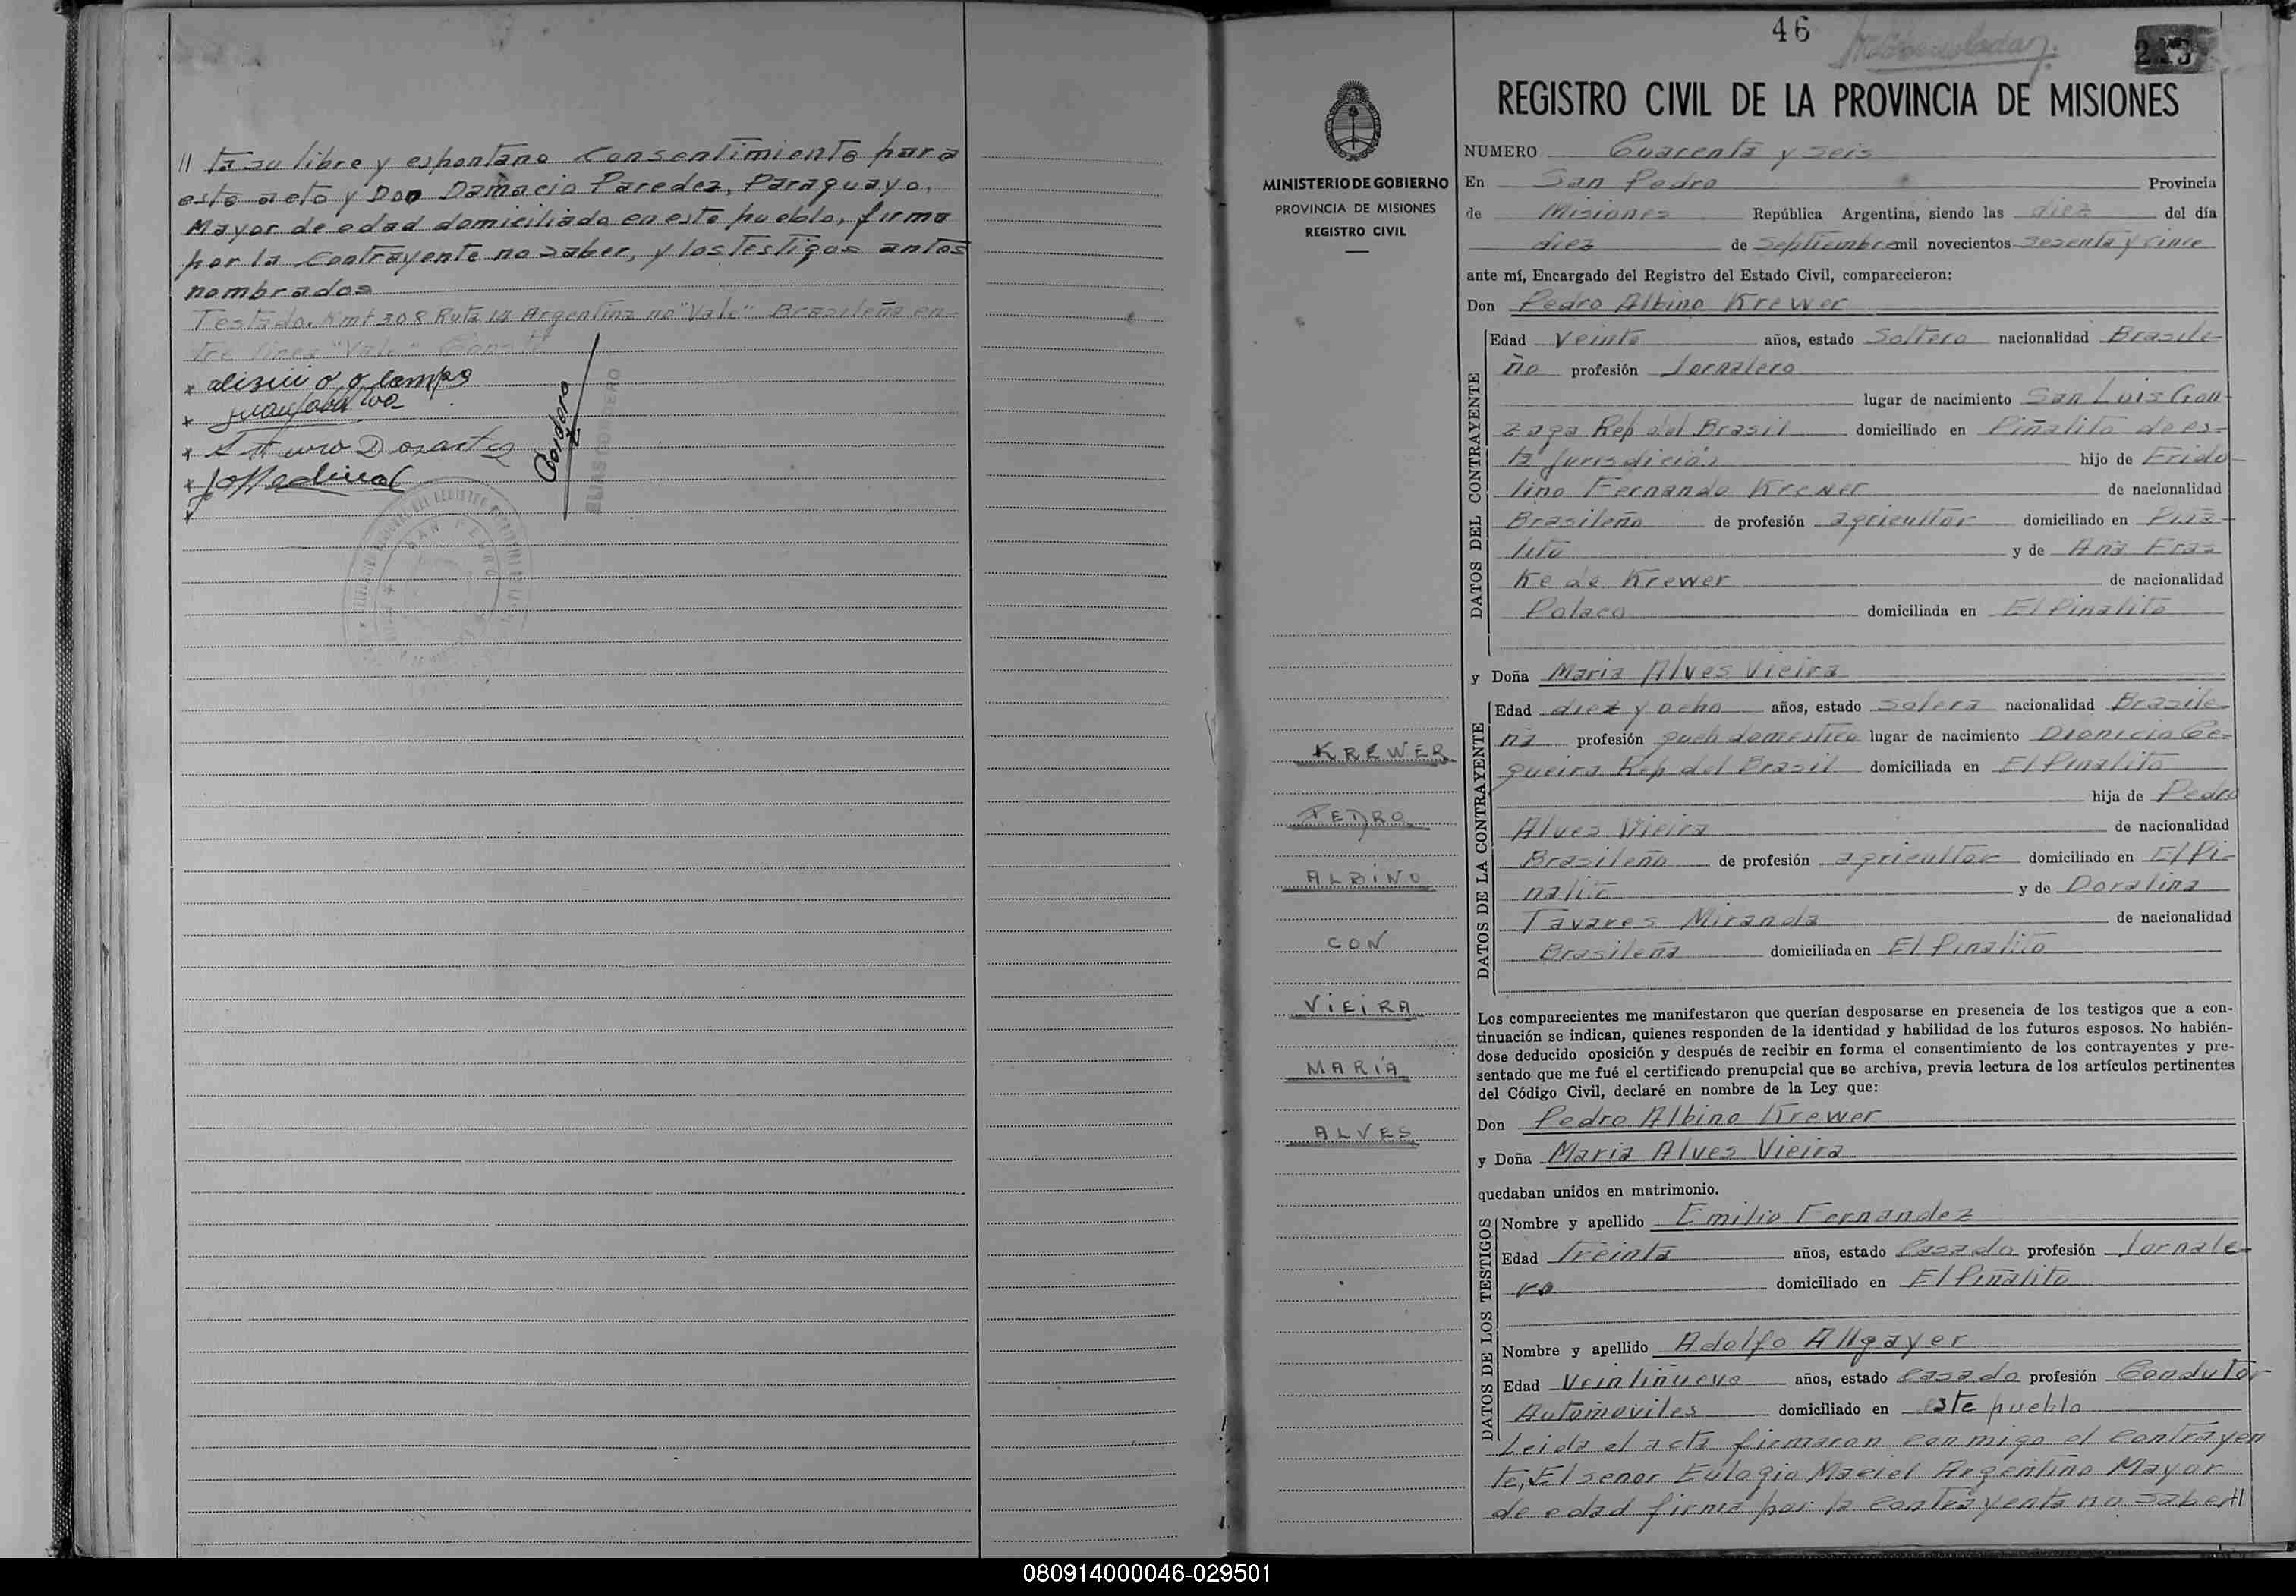 // ta su libre y espontano consentimiento para
este acto y Don Damacio Paredez, Paraguayo,
Mayor de edad domiciliado en este pueblo, firma
por la contrayente no saber, y los testigos antes
nombrados
Testado. Kmt 308 Ruta 14 Argentina no "Vale" Brasileña en-
tre linea "Vale"
Arturo D
Cordero
ELIAS CORDERO
SAN PEDRO
46
213
REGISTRO CIVIL DE LA PROVINCIA DE MISIONES
MINISTERIO DE GOBIERNO
PROVINCIA DE MISIONES
REGISTRO CIVIL
KREWER
PEDRO
ALBINO
CON
VIEIRA
MARIA
ALVES
NUMERO Cuarenta y seis
En San Pedro Provincia
de Misiones República Argentina, siendo las diez del día
diez de Septiembre mil novecientos sesenta y cinco
ante mí, Encargado del Registro del Estado Civil, comparecieron:
Don Pedro Albino Krewer
DATOS DEL CONTRAYENTE
Edad Veinte años, estado Soltero nacionalidad Brasile-
ño profesión Jornalero
lugar de nacimiento San Luis Gon-
zaga Rep. del Brasil domiciliado en Piñalito de es-
ta Jurisdición hijo de Frido-
lino Fernando Krewer de nacionalidad
Brasileño de profesión agricultor domiciliado en Piña-
lito y de Ana Fras
Ke de Krewer de nacionalidad
Polaco domiciliada en El Pinalito
y Doña Maria Alves Vieira
DATOS DE LA CONTRAYENTE
Edad diez y ocho años, estado Solera nacionalidad Brasile-
ña profesión queh domestico lugar de nacimiento Dionicio Ce-
queira Rep del Brasil domiciliada en El Pinalito
hija de Pedro
Alves Vieira de nacionalidad
Brasileño de profesión agricultor domiciliado en El Pi-
nalito y de Doralina
Tavares Miranda de nacionalidad
Brasileña domiciliada en El Pinalito
Los comparecientes me manifestaron que querían desposarse en presencia de los testigos que a con-
tinuación se indican, quienes responden de la identidad y habilidad de los futuros esposos. No habién-
dose deducido oposición y después de recibir en forma el consentimiento de los contrayentes y pre-
sentado que me fué el certificado prenupcial que se archiva, previa lectura de los artículos pertinentes
del Código Civil, declaré en nombre de la Ley que:
Don Pedro Albino Krewer
y Doña Maria Alves Vieira
quedaban unidos en matrimonio.
DATOS DE LOS TESTIGOS
Nombre y apellido Emilio Fernandez
Edad Treinta años, estado Casado profesión Jornale-
ro domiciliado en El Piñalito
Nombre y apellido Adolfo Allgayer
Edad Veintinueve años, estado Casado profesión Condutor
Automoviles domiciliado en este pueblo
Leida el acta firmaron conmigo el contrayen
te, El señor Eulogio Maciel Argentino Mayor
de edad firma por la contrayenta no saber //
080914000046-029501